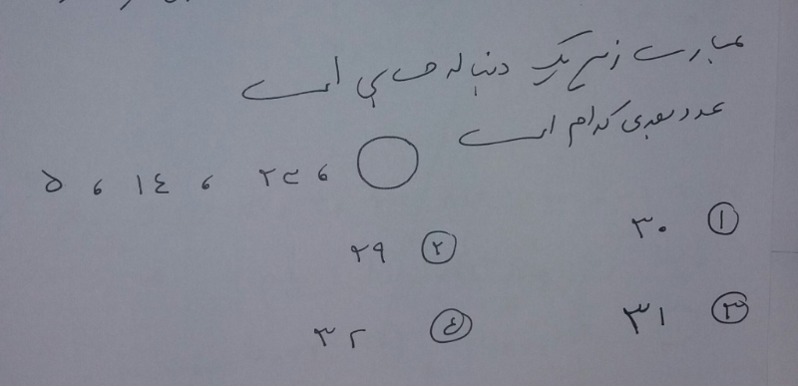 عبارت زیر یک دنباله حسابی است
عدد بعدی کدام است
۵ ، ۱٤ ، ۲۳ ،
۱ ۳۰
۲ ۲۹
۳ ۳۱
٤ ۳۲